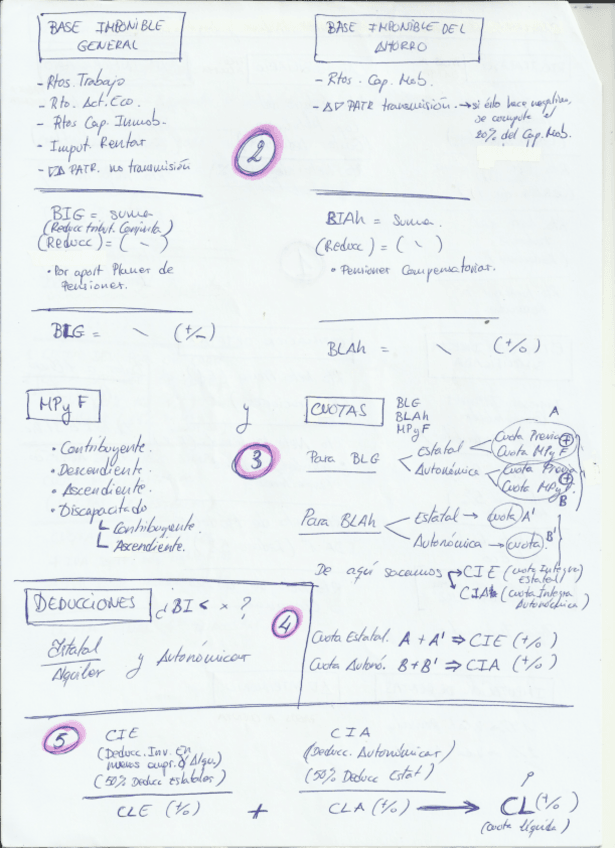 BASE IMPONIBLE
GENERAL
- Rtos. Trabajo
- Rto. Act. Eco.
- Rtos Cap. Inmob.
- Imput. Rentas
- ▽△ PATR. no transmisión
BASE IMPONIBLE DEL
AHORRO
- Rtos. Cap. Mob.
- △▽ PATR transmisión. → si ésto hace negativo,
se computa el
20% del Cap. Mob.
2
BIG = suma
(Reducc tribut. Conjunta)
(Reducc) = ( \ )
• Por aport Planes de
Pensiones.
BLG = \ (+/-)
BIAh = suma.
(Reducc) = ( \ )
• Pensiones Compensatorias.
BLAh = \ (+/0)
MPyF
• Contribuyente.
• Descendiente.
• Ascendiente.
• Discapacitado
Contribuyente.
Ascendiente.
y
3
CUOTAS
BLG
BLAh
MPyF
A
Para BLG
Estatal
Cuota Previa
Cuota MPyF
+
Autonómica
Cuota Previa
Cuota MPyF
+
B
Para BLAh
Estatal → cuota A'
Autonómica → cuota. B'
De aquí sacamos → CIE (cuota Integra
Estatal)
CIA (cuota Integra
Autonómica)
DEDUCCIONES ¿BI < x ?
4
Estatal y Autonómicas
Alquiler
Cuota Estatal. A + A' ⇒ CIE (+/0)
Cuota Autonó. B + B' ⇒ CIA (+/0)
5
CIE
(Deducc. Inv. En
(50% Deducc Estatales)
CLE (+/0)
+
CIA
(Deducc. Autonómicas)
(50% Deducc Estat)
CLA (+/0) → CL (+/0)
(cuota líquida)